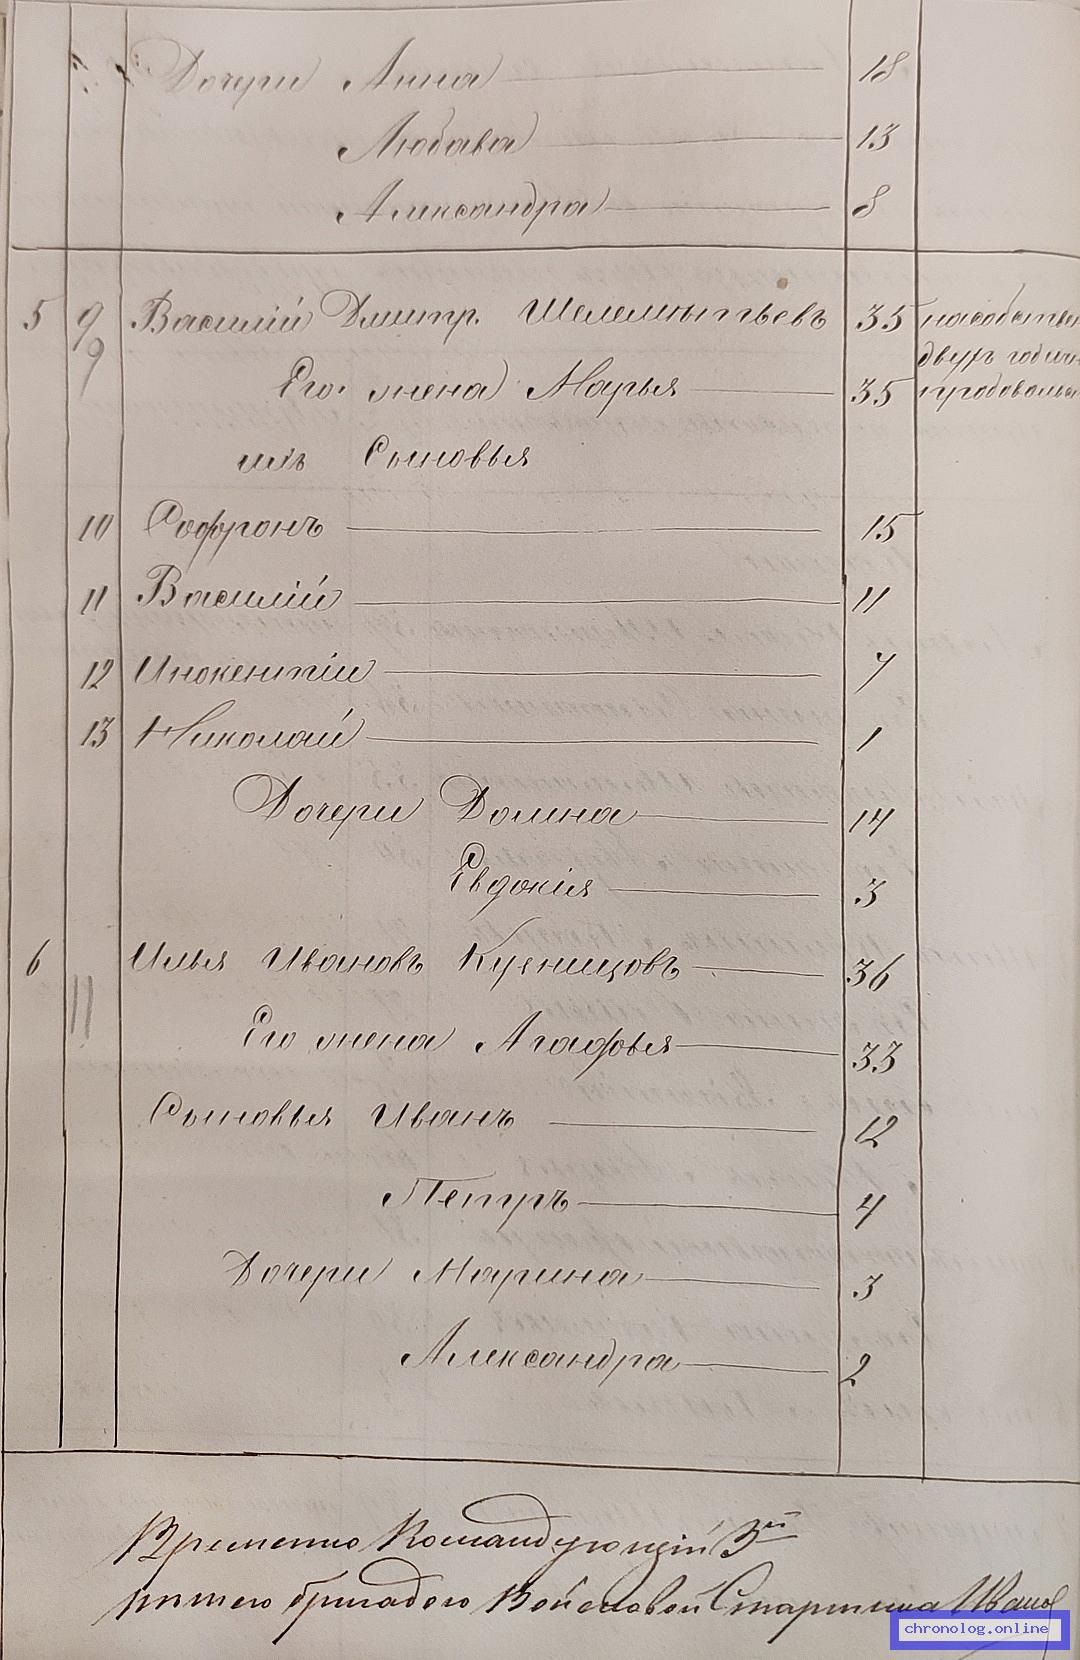 Дочери Анна 18
Любава 13
Александра 8
5 9 Василій Дмитр. Шелеметьевъ 35 насобствен
9 двухъ годич
Его жена Марья 35 продоволь
ихъ Сыновья
10 Софронъ 15
11 Василій 11
12 Инокентіи 7
13 Николай 1
Дочери Домна 14
Евдокія 3
6 Илья Ивановъ Кузницовъ 36
11
Его жена Агафья 33
Сыновья Иванъ 12
Петръ 4
Дочери Марина 3
Александра 2
Временно Командующій 3ей
пѣшею бригадою Войсковой Старшина Иванов
chronolog.online